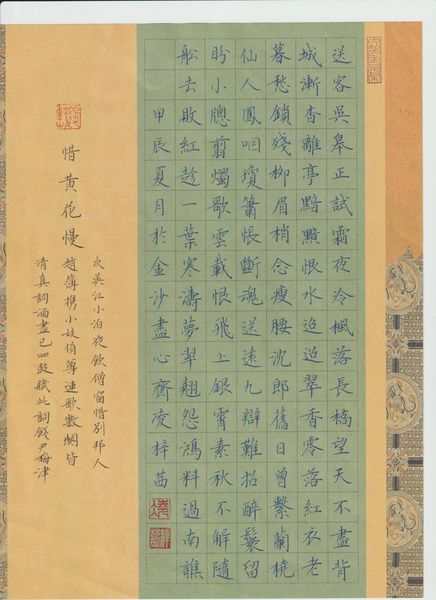 送客吳皋正試霜夜冷楓落長橋望天不盡背
城漸杳離亭黯黯恨水迢迢翠香零落紅衣老
暮愁鎖殘柳眉梢念瘦腰沈郎舊日曾繫蘭橈
仙人鳳咽瓊簫悵斷魂送遠九辯難招醉鬟留
盼小牕剪燭歌雲載恨飛上銀霄素秋不解隨
舩去敗紅趁一葉寒濤夢翠翹怨鴻料過南譙
甲辰夏月於金沙盡心齋凌梓茜
惜黃花慢
次吳江小泊夜飲僧窗惜別邦人
趙簿攜小妓侑尊連歌數闋皆
清真詞酒盡已四鼓賦此詞餞尹梅津